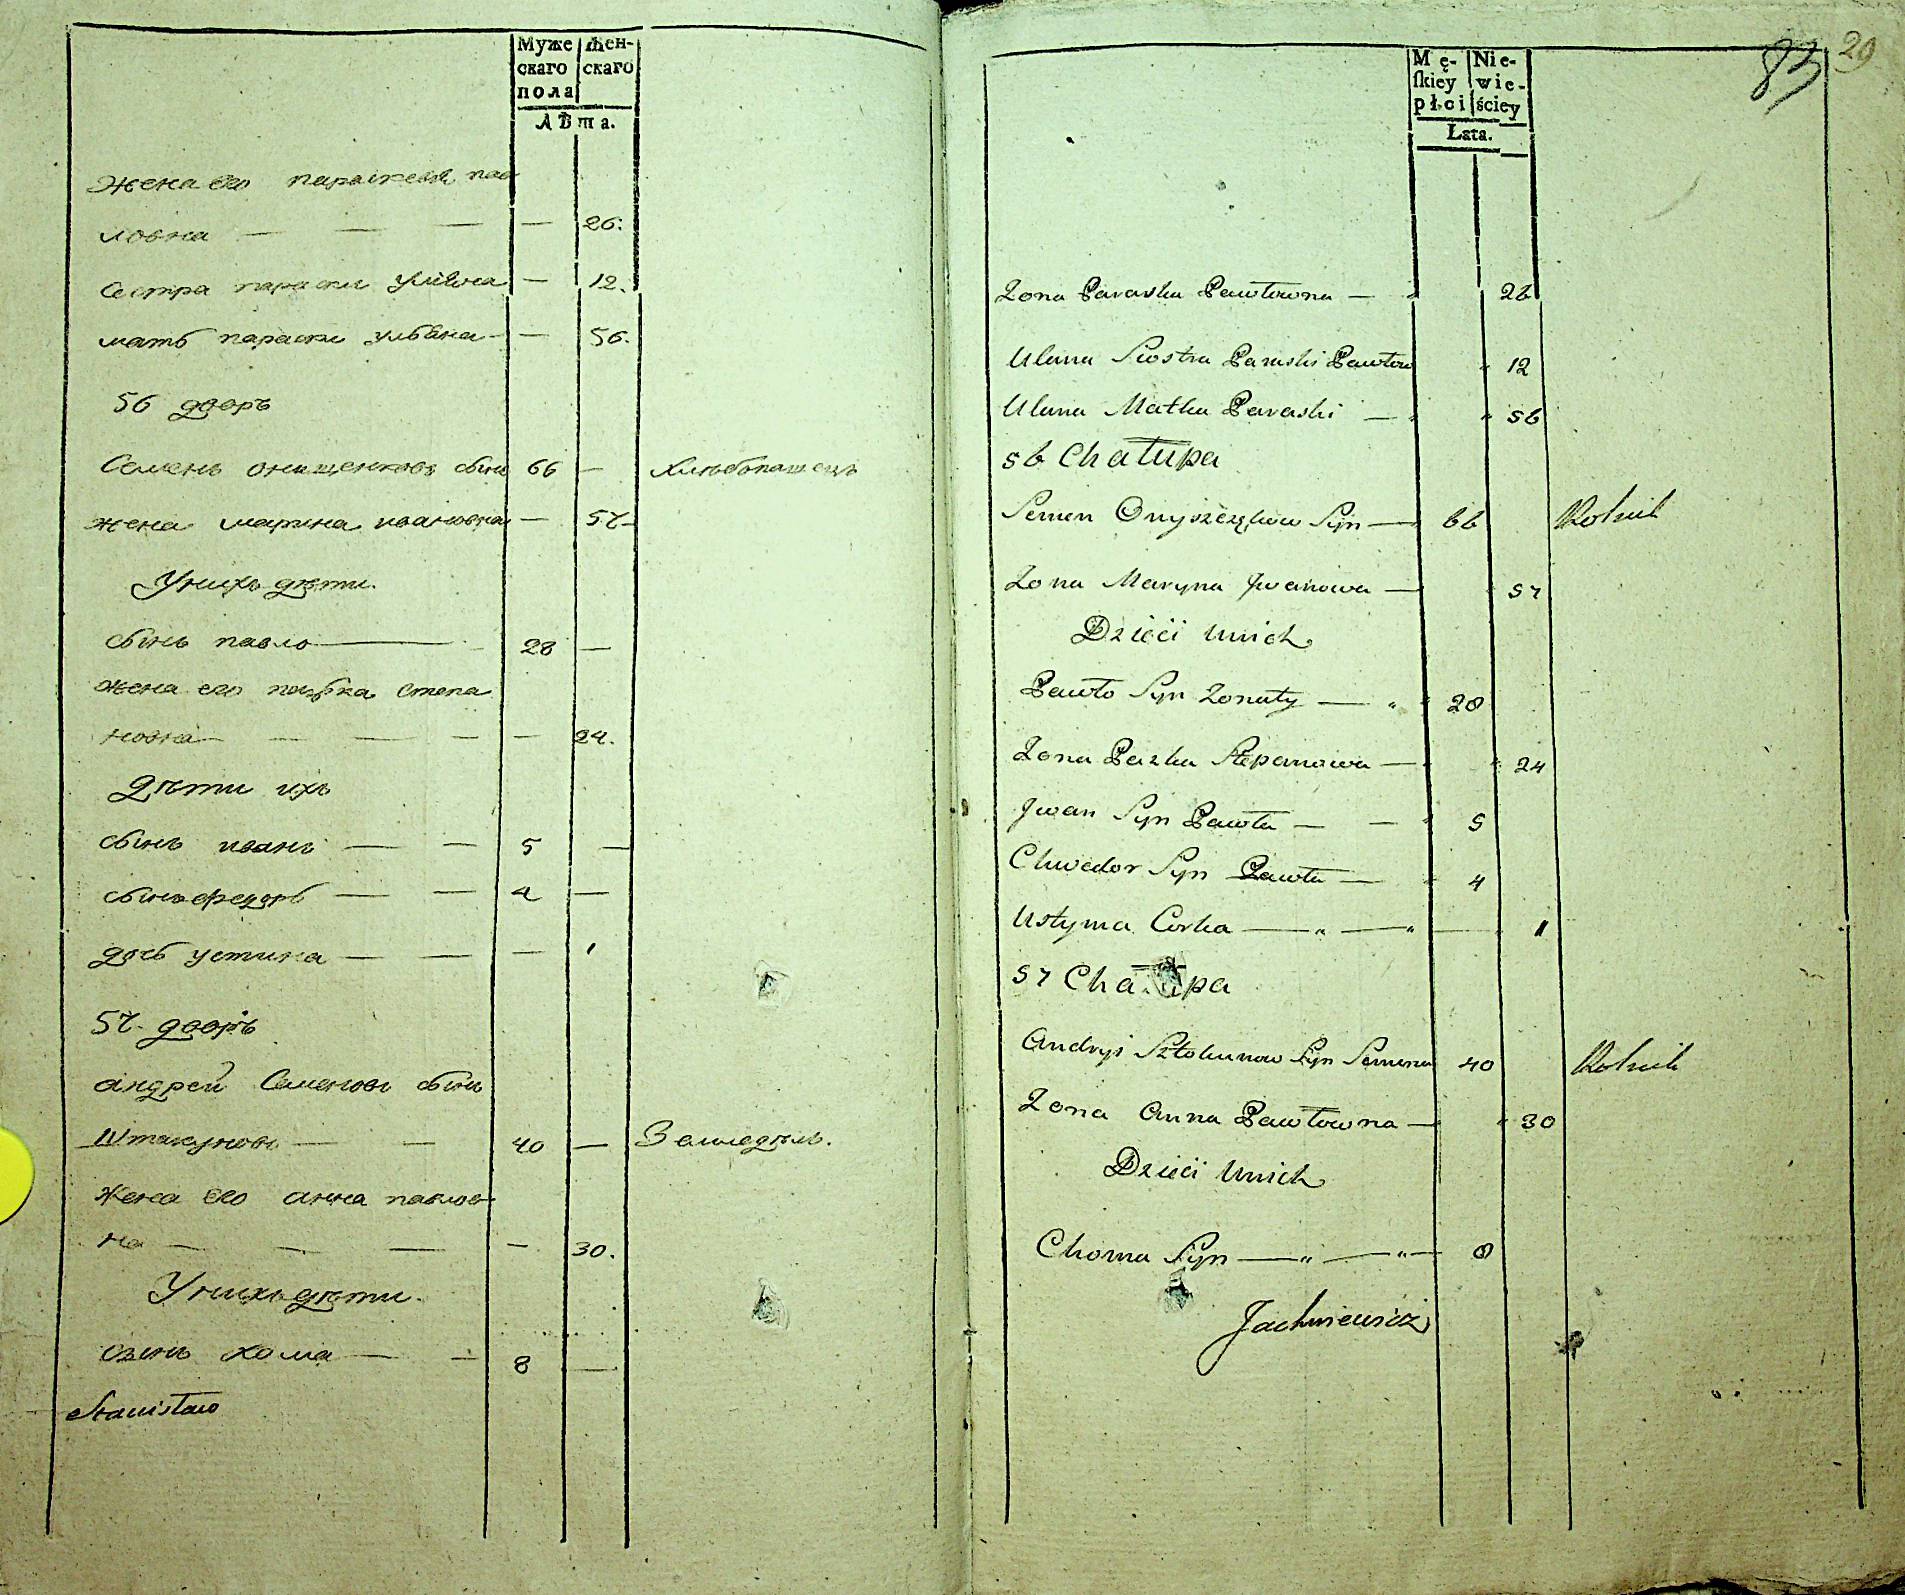 Муже
скаго
пола
Жен-
скаго
Лѣта.
жена его параскева пав
ловна — — — — 26.
сестра параски улияна — 12.
мать параски улвяна — 56.
56 дворъ
Семенъ онищенковъ сынъ 66 — хлѣбопашецъ
жена марина ивановна — 57
Унихъ дѣти.
сынъ павло — 28 —
жена его пазька степа
новна — — — — 24.
Дѣти ихъ
сынъ иванъ — — 5 —
сынъ федоръ — — 4 —
дочь устина — — — 1
57 дворъ
андрей Семеновъ сынъ
Штакуновъ — — 40 — Земледѣл.
жена его анна павлов
на — — — — 30.
Унихъ дѣти.
сынъ хома — — 8 —
Stanisław
83 29
Mę-
skiey
płci
Nie-
wie-
ściey
Łata.
Zona Paraska Pawłowna — 26
Ulana Siostra Paraski Pawłow 12
Ulana Matka Paraski — 56
56 Chałupa
Semen Onyszczękow Syn — 66 Rolnik
Zona Maryna Jwanowa — 57
Dzieci Unich
Pawło Syn Zonaty — 28
Zona Pazka Stepanowa — 24
Jwan Syn Pawła — — 5
Chwedor Syn Pawła — 4
Ustyma Corka — " — " — 1
57 Chałupa
Andryi Sztokunow Syn Semena 40 Rolnik
Zona Anna Pawłowna — 30
Dzieci Unich
Choma Syn — " — " — 8
Jachniewicz